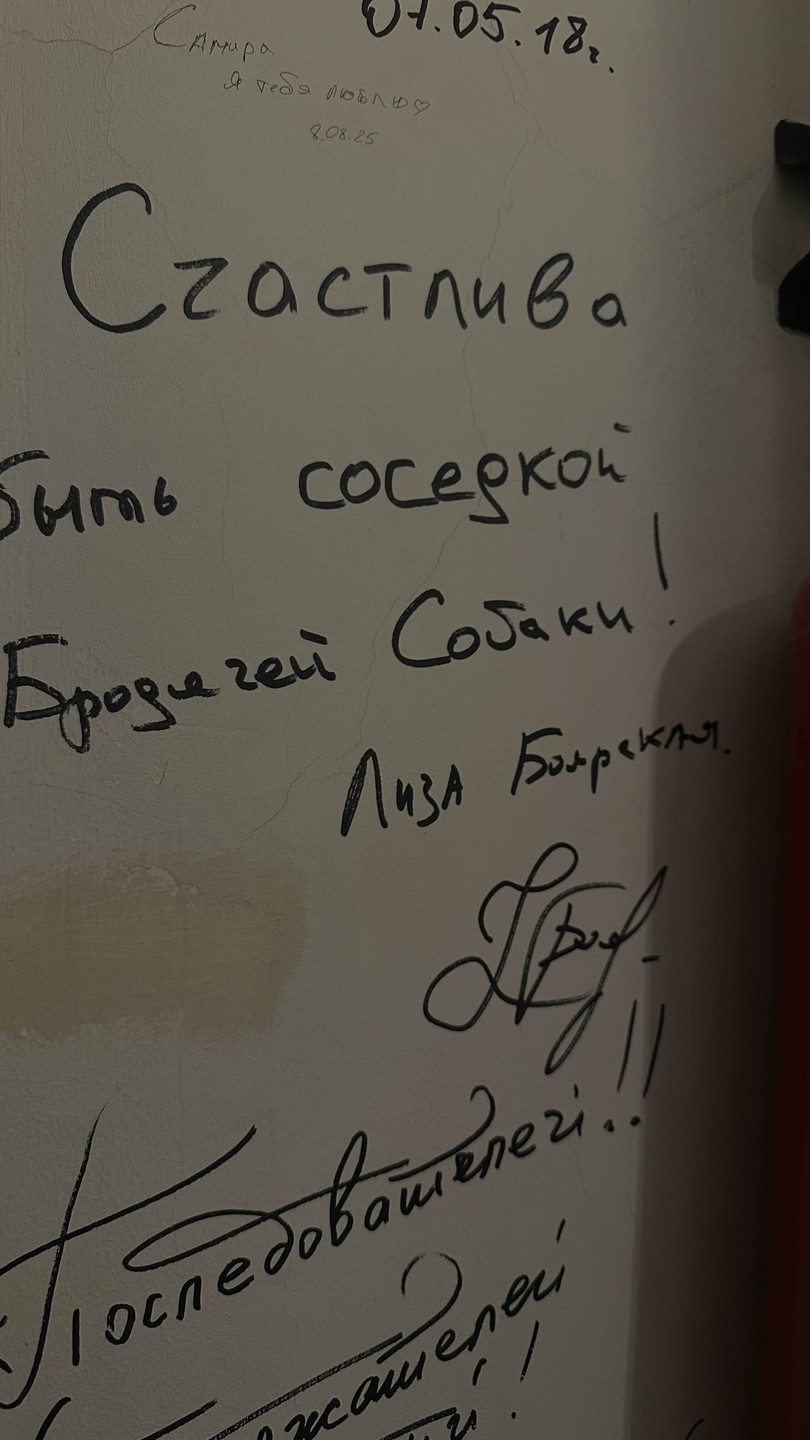 07.05.18г.
Самира
я тебя люблю♡
8.08.25
Счастлива
быть соседкой
Бродячей Собаки!
Лиза Боярская.
Последователей!!